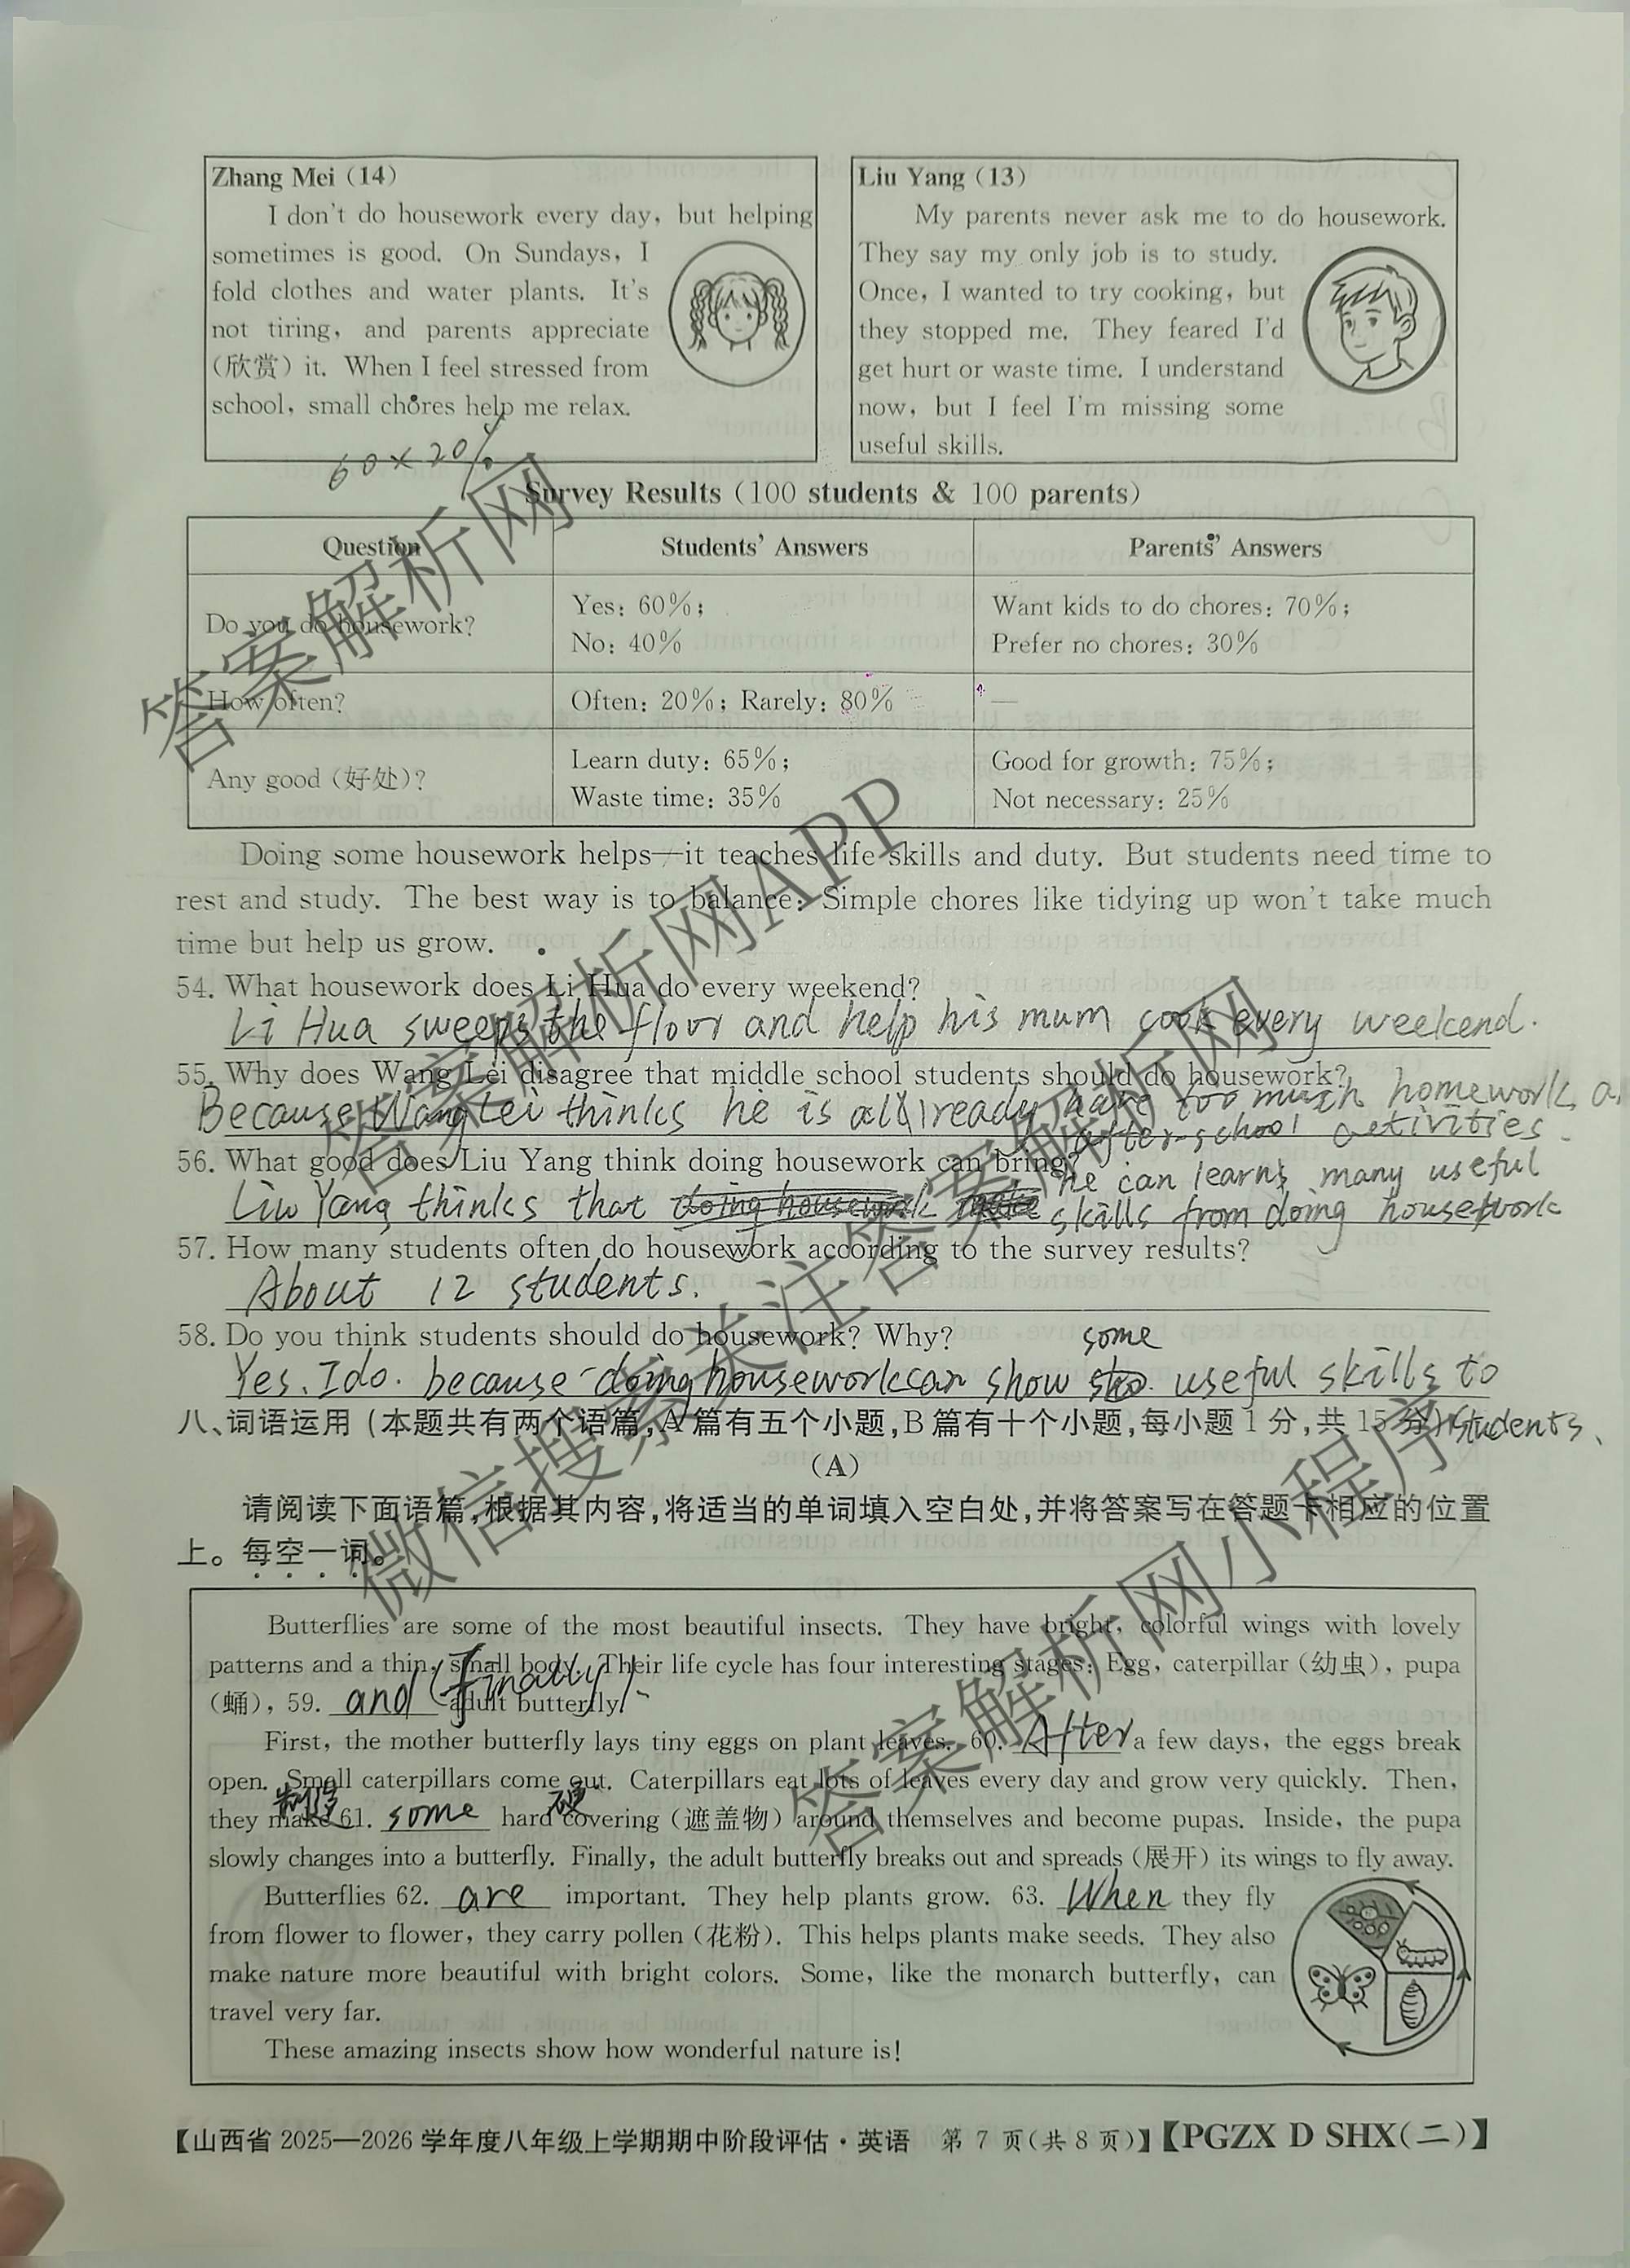 Zhang Mei (14)
I don't do housework every day, but helping
sometimes is good. On Sundays, I
fold clothes and water plants. It's
not tiring, and parents appreciate
(欣赏) it. When I feel stressed from
school, small chores help me relax.
60×20%
Liu Yang (13)
My parents never ask me to do housework.
They say my only job is to study.
Once, I wanted to try cooking, but
they stopped me. They feared I'd
get hurt or waste time. I understand
now, but I feel I'm missing some
useful skills.
Survey Results (100 students & 100 parents)
Question Students' Answers Parents' Answers
Do you do housework?
Yes: 60%;
No: 40%
Want kids to do chores: 70%;
Prefer no chores: 30%
How often? Often: 20%; Rarely: 80% —
Any good (好处)?
Learn duty: 65%;
Waste time: 35%
Good for growth: 75%;
Not necessary: 25%
Doing some housework helps—it teaches life skills and duty. But students need time to
rest and study. The best way is to balance: Simple chores like tidying up won't take much
time but help us grow.
54. What housework does Li Hua do every weekend?
Li Hua sweeps the floor and help his mum cook every weekend.
55. Why does Wang Lei disagree that middle school students should do housework?
Because Wang Lei thinks he is already have too much homework
after-school activities.
56. What good does Liu Yang think doing housework can bring?
Liu Yang thinks that he can learn many useful
skills from doing housework
57. How many students often do housework according to the survey results?
About 12 students.
58. Do you think students should do housework? Why?
Yes, I do. because doing housework can show some useful skills to
students.
八、词语运用 (本题共有两个语篇,A篇有五个小题,B篇有十个小题,每小题1分,共15分)
(A)
请阅读下面语篇,根据其内容,将适当的单词填入空白处,并将答案写在答题卡相应的位置
上。每空一词。
Butterflies are some of the most beautiful insects. They have bright, colorful wings with lovely
patterns and a thin, small body. Their life cycle has four interesting stages: Egg, caterpillar (幼虫), pupa
(蛹), 59. and (Finally) adult butterfly.
First, the mother butterfly lays tiny eggs on plant leaves. 60. After a few days, the eggs break
open. Small caterpillars come out. Caterpillars eat lots of leaves every day and grow very quickly. Then,
制造 硬
they make 61. some hard covering (遮盖物) around themselves and become pupas. Inside, the pupa
slowly changes into a butterfly. Finally, the adult butterfly breaks out and spreads (展开) its wings to fly away.
Butterflies 62. are important. They help plants grow. 63. When they fly
from flower to flower, they carry pollen (花粉). This helps plants make seeds. They also
make nature more beautiful with bright colors. Some, like the monarch butterfly, can
travel very far.
These amazing insects show how wonderful nature is!
【山西省 2025—2026 学年度八年级上学期期中阶段评估·英语 第 7 页(共 8 页)】【PGZX D SHX(二)】
答案解析网
答案解析网APP
微信搜索关注答案解析网
答案解析网小程序